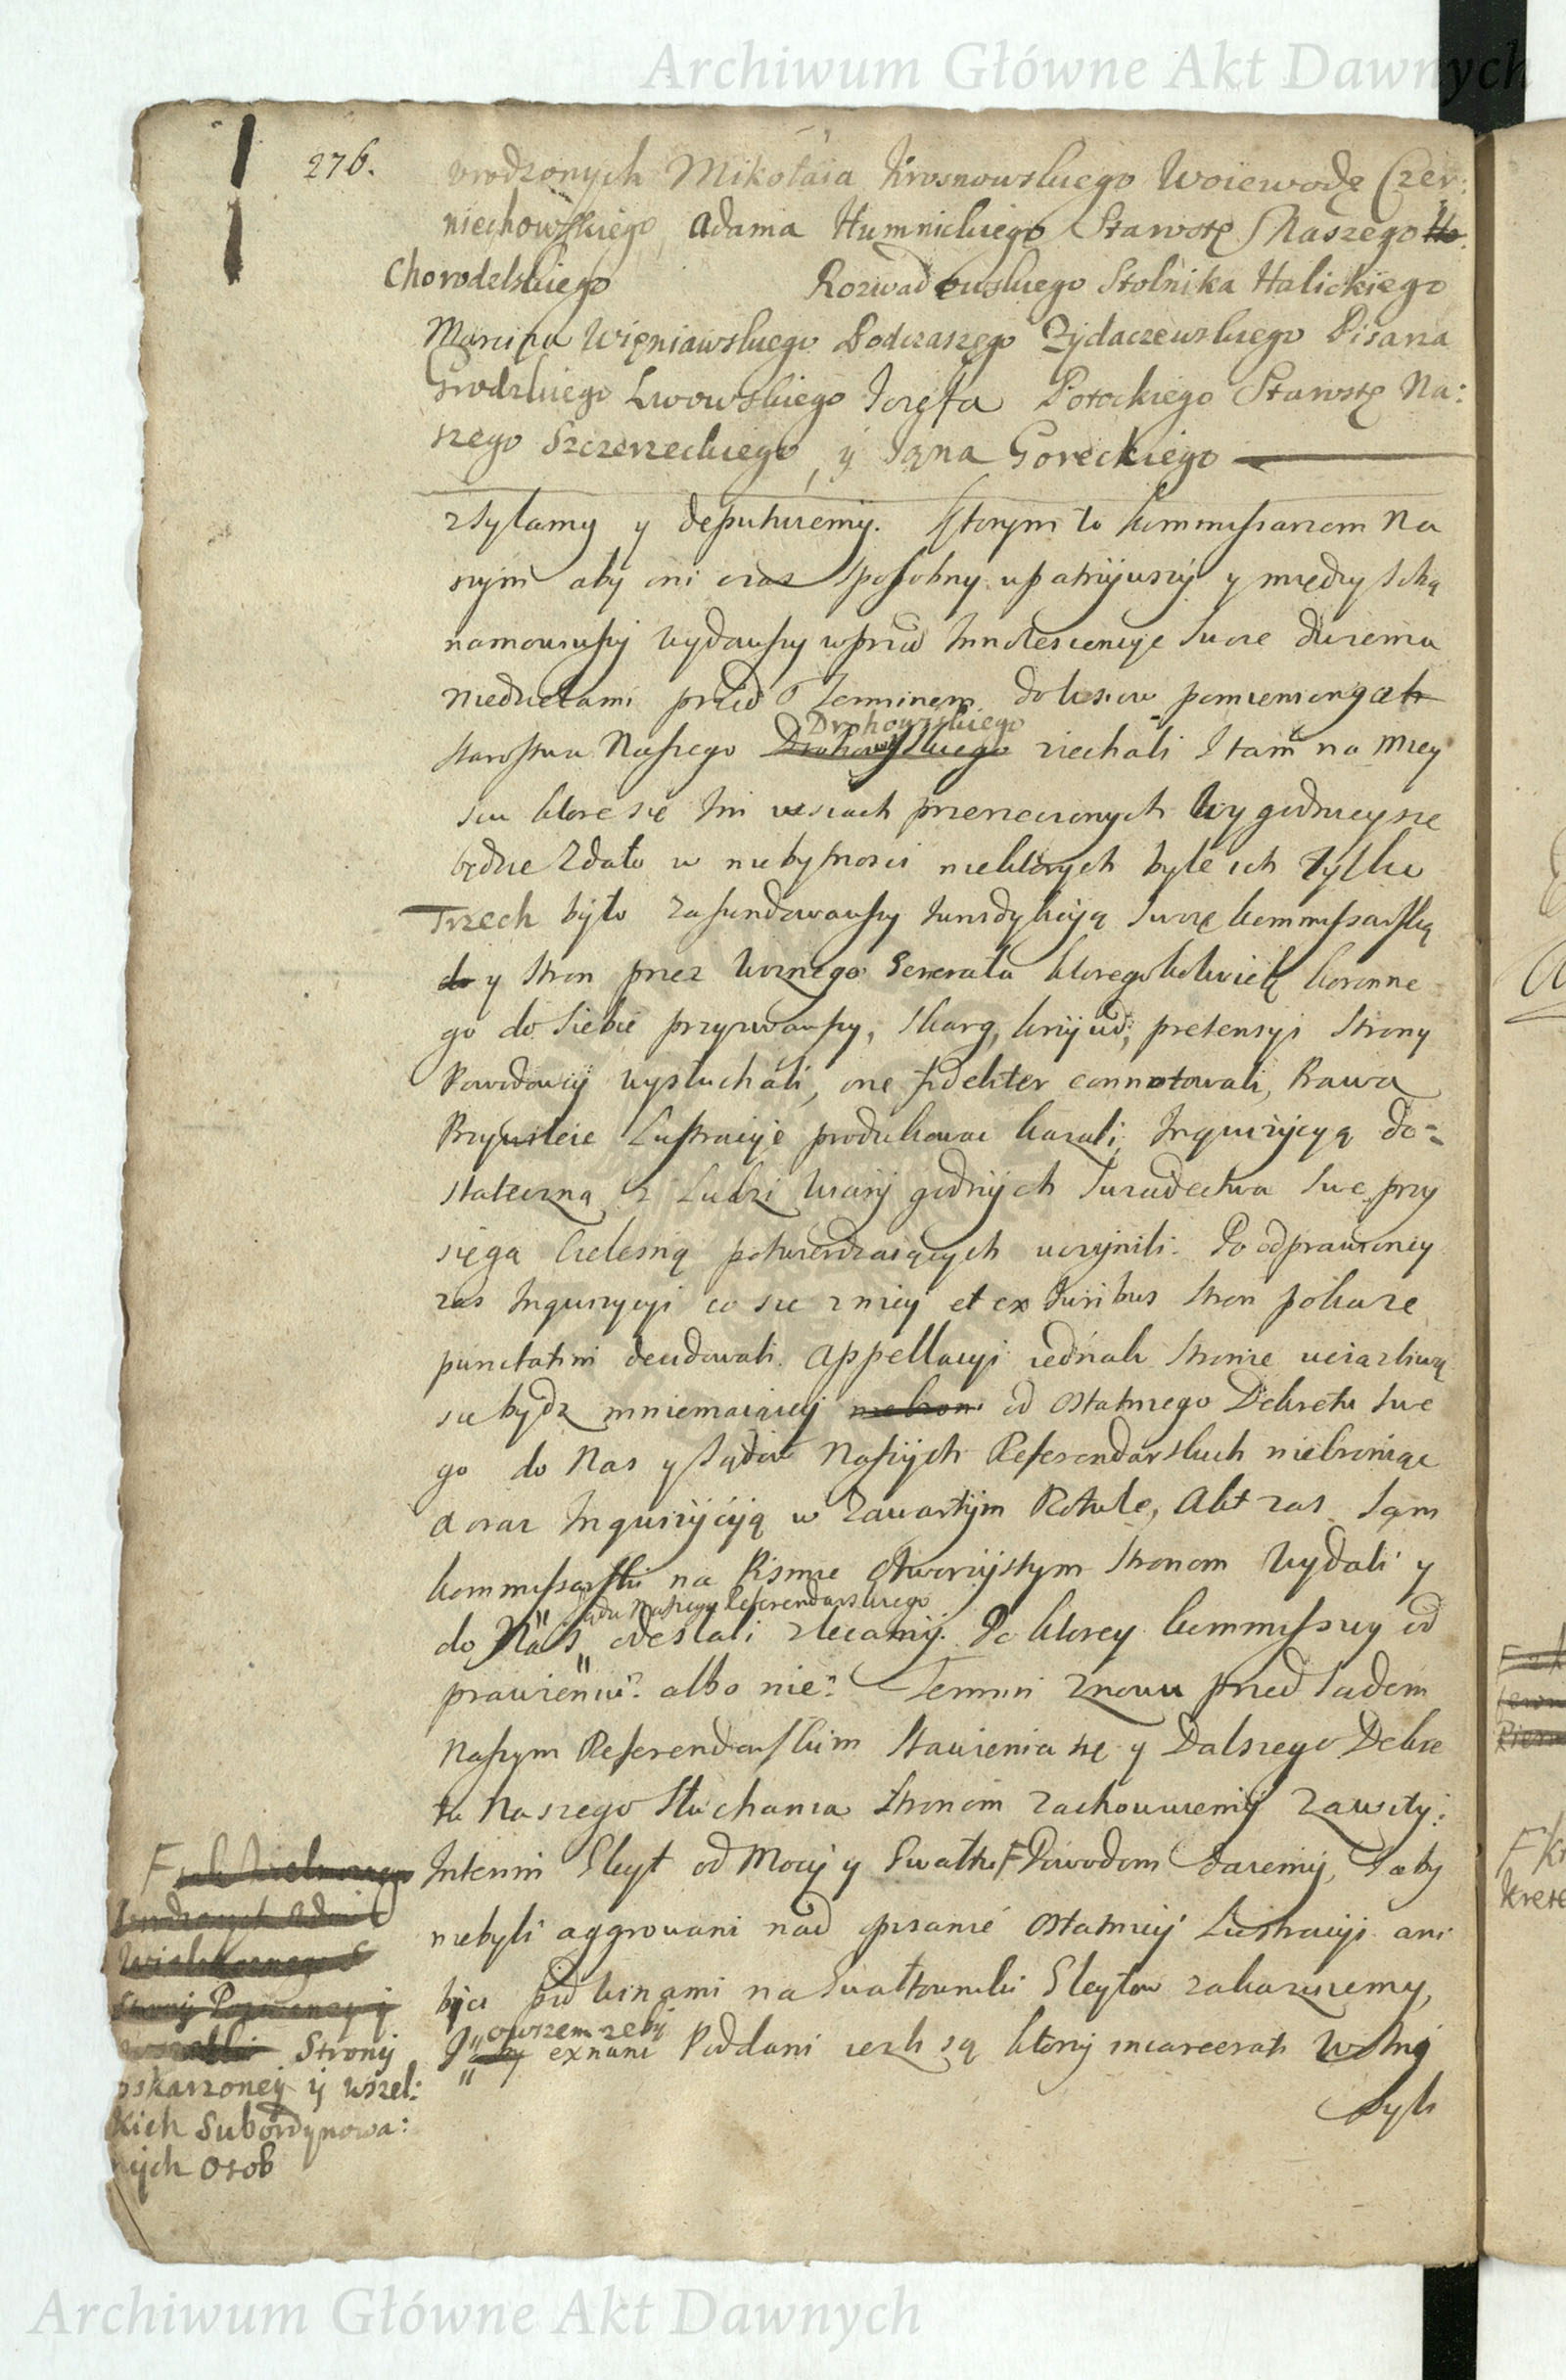 Archiwum Główne Akt Dawnych
276.
vrodzonych Mikołaia Krosnowskiego Woiewodę Czer:
niechowskiego, Adama Humnickiego Starostę Naszego
Chorodelskiego Rozwadowskiego Stolnika Halickiego
Marcina Więniawskiego Podczaszego Zydaczewskiego Pisarza
Grodzkiego Lwowskiego Iozefa Potockiego Starostę Na:
szego Szczerzeckiego, y Iana Goreckiego
zsyłamy y deputuiemy. Ktorym to Kommissarzom Na
szym aby oni czas sposobny upatrzywszy y między sobą
namowiwszy wydawszy wprzod Innotescencyie swoie dwiema
Niedzielami przed Terminem do wsiow pomienionych
Starostwa Naszego Drohowyskiego Drohowyskiego ziechali I tam na Miey
scu ktore się Im w wsiach przerzeczonych wygodnieysze
będzie zdało w niebytnosci niektorych byle ich tylko
Trzech było zafundowawszy Iurisdykcyią swoię kommissarską
do y Stron przez Woznego Generała ktoregokolwiek koronne
go do siebie przyzwawszy, skarg, krzywd, pretensyi Strony
Powodowey wysłuchali, one fideliter connotowali, Prawa
Przywileie Lustracyie produkowac kazali, Inquizycyą do=
stateczną z Ludzi wiary godnych swiadectwa swe przy
sięgą cielesną potwierdzaiących uczynili. Po odprawioney
zas Inquizycyi co się z niey et ex Iuribus Stron pokaze
punctatim decidowali. Appellacyi iednak Stronie uciązliwą
się bydz mniemaiącey od ostatniego Dekretu swe
go do Nas y Sądow Naszych Referendarskich niebroniąc
a oraz Inquizycyią w zawartym Rotule, Akt zas sam
kommissarski na Pismie otworzystym Stronom wydali y
Sądu Naszego Referendarskiego
do Nas odesłali zlecamy. Po ktorey kommissyey od
prawieniu: albo nie: Termin znowu przed Sądem
Naszym Referendarskim stawienia się y Dalszego Dekre
tu Naszego słuchania Stronom zachowuiemy zawity:
Interim Gleyt od Mocy y Gwałtu F Powodom daiemy, I aby
niebyli aggrowani nad opisanie ostatniey Lustracyi ani
bici pod winami na Gwałtowniki Gleytow zakazuiemy,
owszem zeby
I aby exnunc Poddani iezli są ktorzy incarcerati wolni
byli
F
Strony
oskarzoney y wszel:
kich Subordynowa:
nych Osob
Archiwum Główne Akt Dawnych